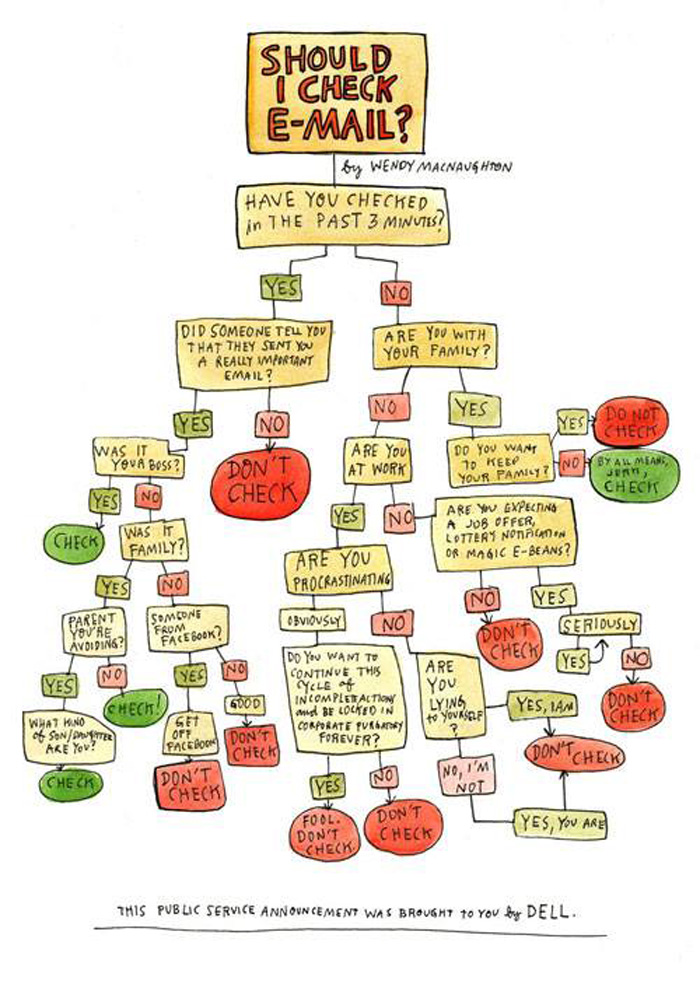 SHOULD
I CHECK
E-MAIL?
by WENDY MACNAUGHTON
HAVE YOU CHECKED
in THE PAST 3 MINUTES?
YES
NO
DID SOMEONE TELL YOU
THAT THEY SENT YOU
A REALLY IMPORTANT
EMAIL?
ARE YOU WITH
YOUR FAMILY?
YES
NO
NO
YES
DON'T
CHECK
WAS IT
YOUR BOSS?
ARE YOU
AT WORK
DO YOU WANT
TO KEEP
YOUR FAMILY?
YES
DO NOT
CHECK
NO
BY ALL MEANS,
CHECK
YES
NO
CHECK
WAS IT
FAMILY?
YES
NO
ARE YOU EXPECTING
A JOB OFFER,
LOTTERY NOTIFICATION
OR MAGIC E-BEANS?
ARE YOU
PROCRASTINATING
YES
NO
NO
YES
PARENT
YOU'RE
AVOIDING?
SOMEONE
FROM
FACEBOOK?
OBVIOUSLY
NO
DON'T
CHECK
SERIOUSLY
YES
NO
DON'T
CHECK
YES
NO
CHECK!
YES
NO
GOOD
DON'T
CHECK
WHAT KIND
OF SON/DAUGHTER
ARE YOU?
CHECK
GET
OFF
FACEBOOK
DON'T
CHECK
DO YOU WANT TO
CONTINUE THIS
CYCLE of
INCOMPLETE ACTIONS
and BE LOCKED IN
CORPORATE PURGATORY
FOREVER?
YES
NO
FOOL.
DON'T
CHECK.
DON'T
CHECK
ARE
YOU
LYING
to YOURSELF
?
YES, I AM
DON'T CHECK
NO, I'M
NOT
YES, YOU ARE
THIS PUBLIC SERVICE ANNOUNCEMENT WAS BROUGHT TO YOU by DELL.